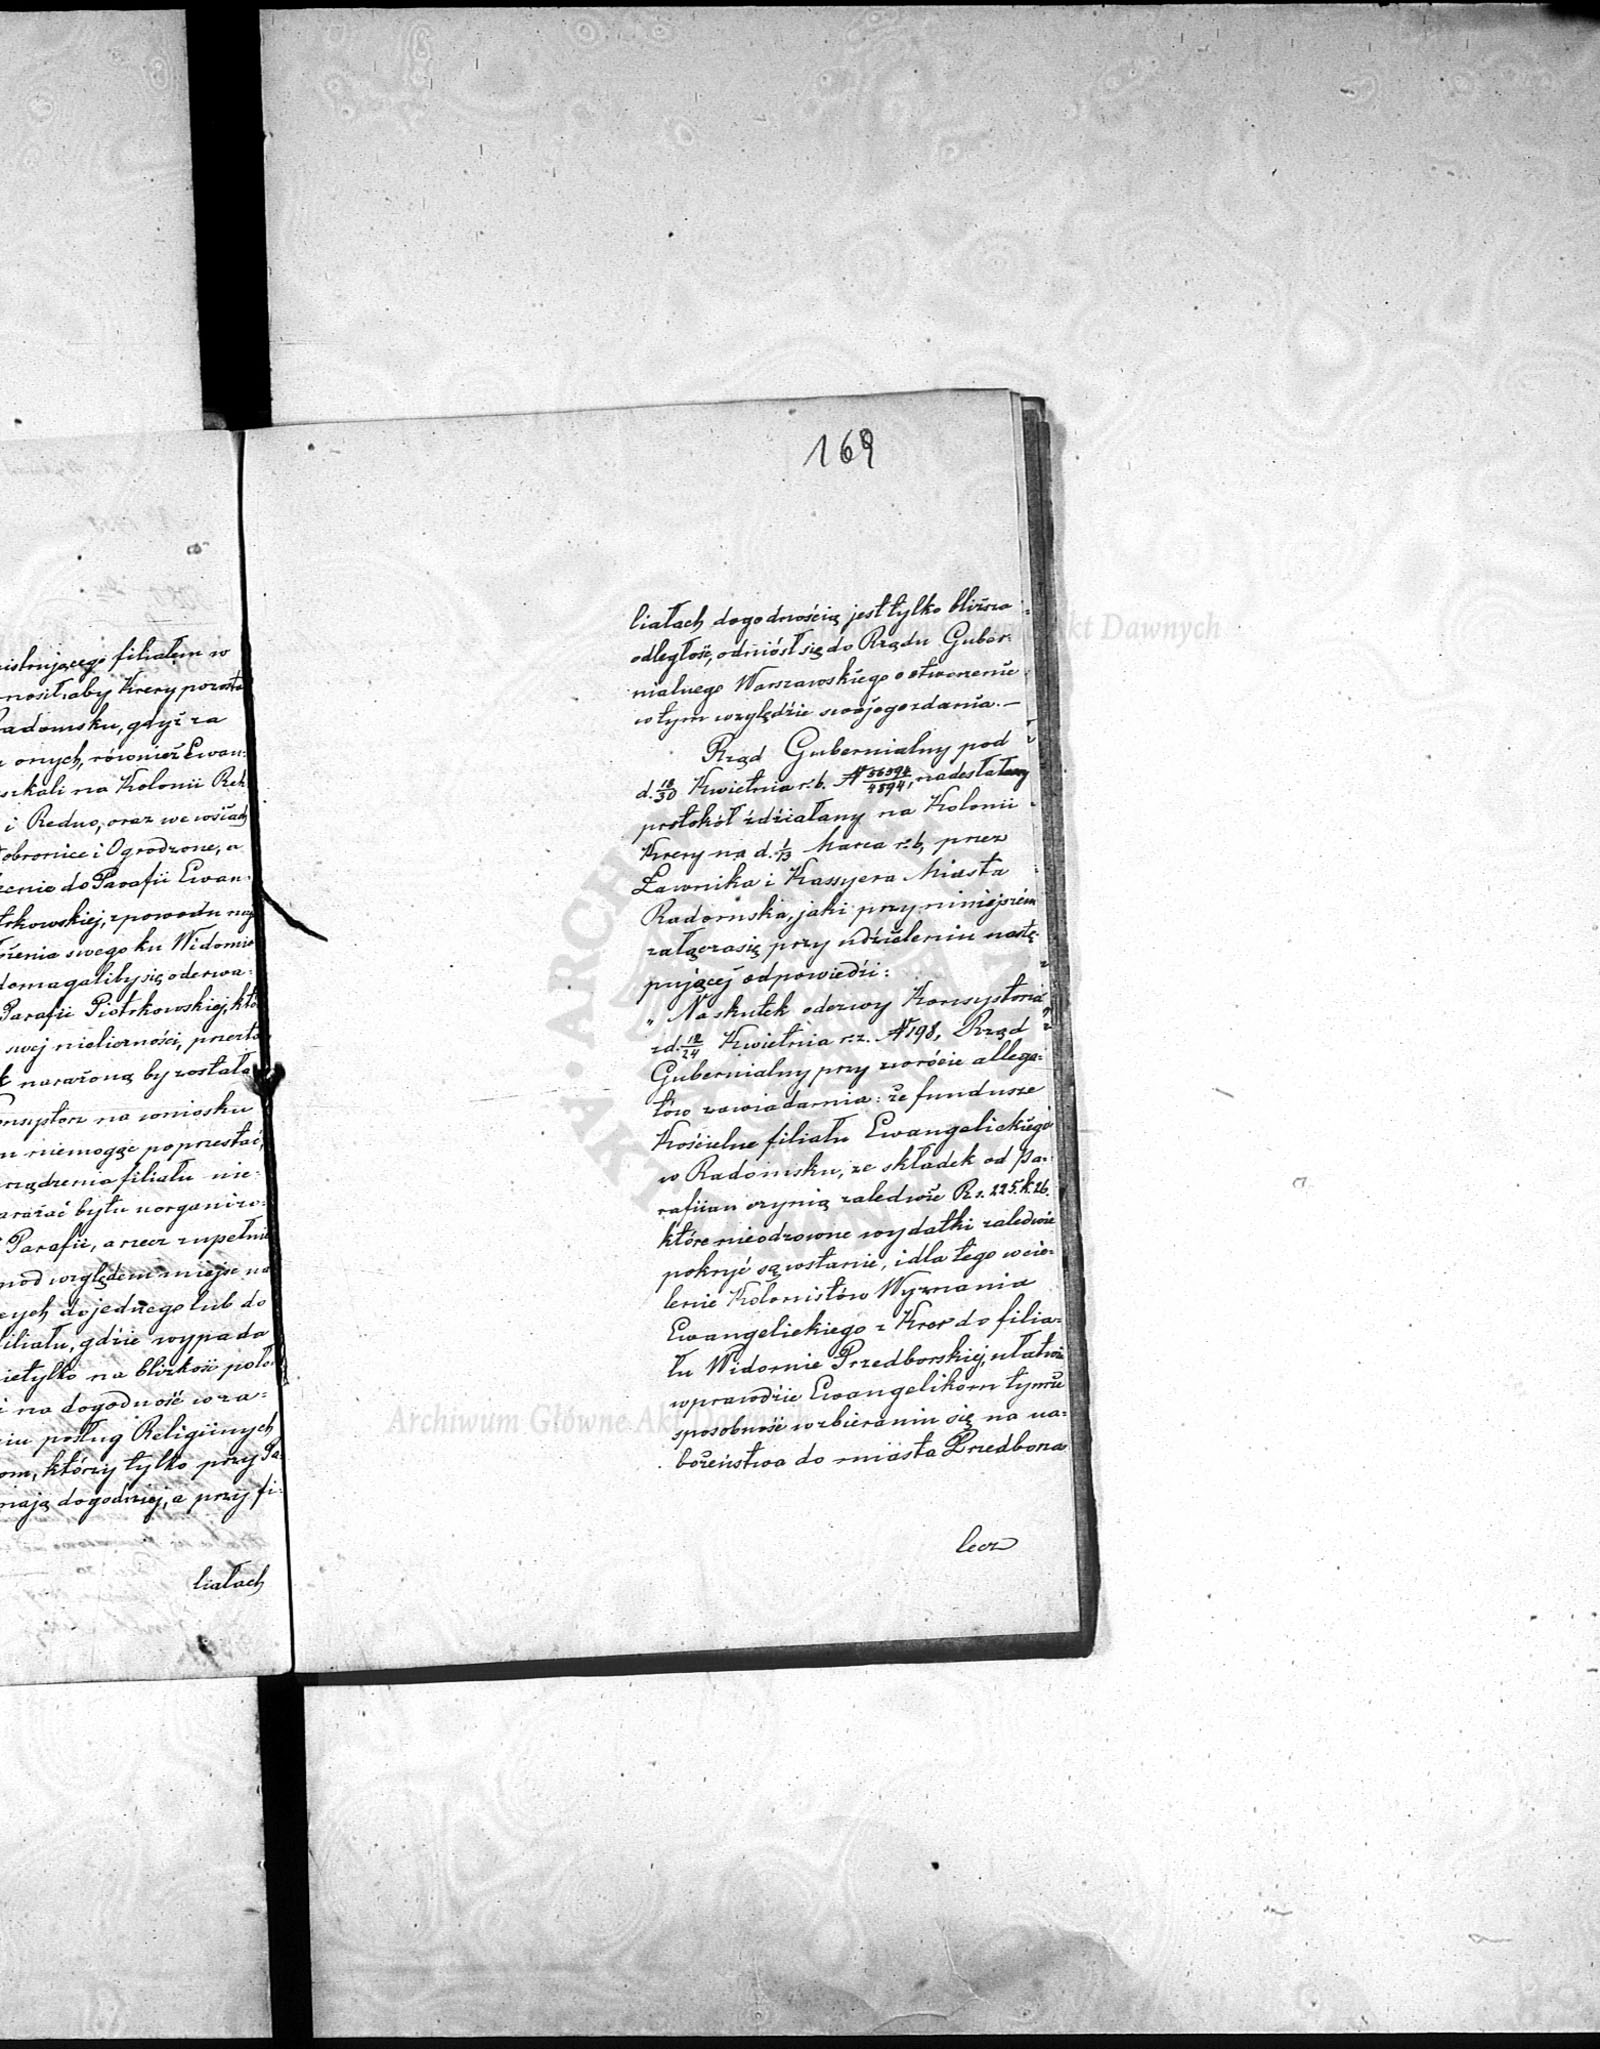 istniejącego filiałem w
nosił, aby Krery pozosta
Radomsku, gdyż za
onych, również Ewan-
szkali na Kolonii Reh
i Reduo, oraz we wsiach
obronice i Ogrodzone, a
czenie do Parafii Ewan-
trkowskiej, z powodu na
żenia swego ku Widomie
domagaliby się oderwa-
Parafii Piotrkowskiej, któ
swej nieliczności, przeto
narażoną by została
onsystorz na wniosku
niemogąc poprzestać,
rządzenia filiału nie-
arażać bytu uorganizo-
Parafii, a rzecz zupełnie
pod względem miejsc na
cych do jednego lub do
filiału, gdzie wypada
ietylko na blizkość poło
i na dogodność w za-
niu posług Religijnych
om, którzy tylko przy Pa-
mają dogodniej, a przy fi-
liałach
169
liałach dogodnością jest tylko bliższa
odległość, odniósł się do Rządu Guber-
nialnego Warszawskiego o otworzenie
w tym względzie swojego zdania. —
Rząd Gubernialny pod
d. 18/30 Kwietnia r. b. № 56394/4894, nadesłał
protokół zdziałany na Kolonii
Krery na d. 1/13 Marca r. b, przez
Ławnika i Kassyera Miasta
Radomska, jaki przy niniejszém
załącza się przy udzieleniu nastę-
pującéj odpowiedzi:
„ Na skutek odezwy Konsystorza
z d. 12/24 Kwietnia r. z. № 198, Rząd
Gubernialny przy zwrócie allega-
tów zawiadamia: że fundusze
Kościelne filiału Ewangelickiego
w Radomsku, ze składek od Pa-
rafiian czynią zaledwie Rs. 225. k. 26.
które nieodzowne wydatki zaledwie
pokryć są wstanie, i dla tego wcie-
lenie Kolonistów Wyznania
Ewangelickiego z Krer do filia-
łu Widomie Przedborskiej, ułatwi
wprawdzie Ewangelikom tym
sposobność w zbieraniu się na na-
bożeństwa do miasta Przedborza
lecz
Archiwum Główne Akt Dawnych
Akt Dawnych